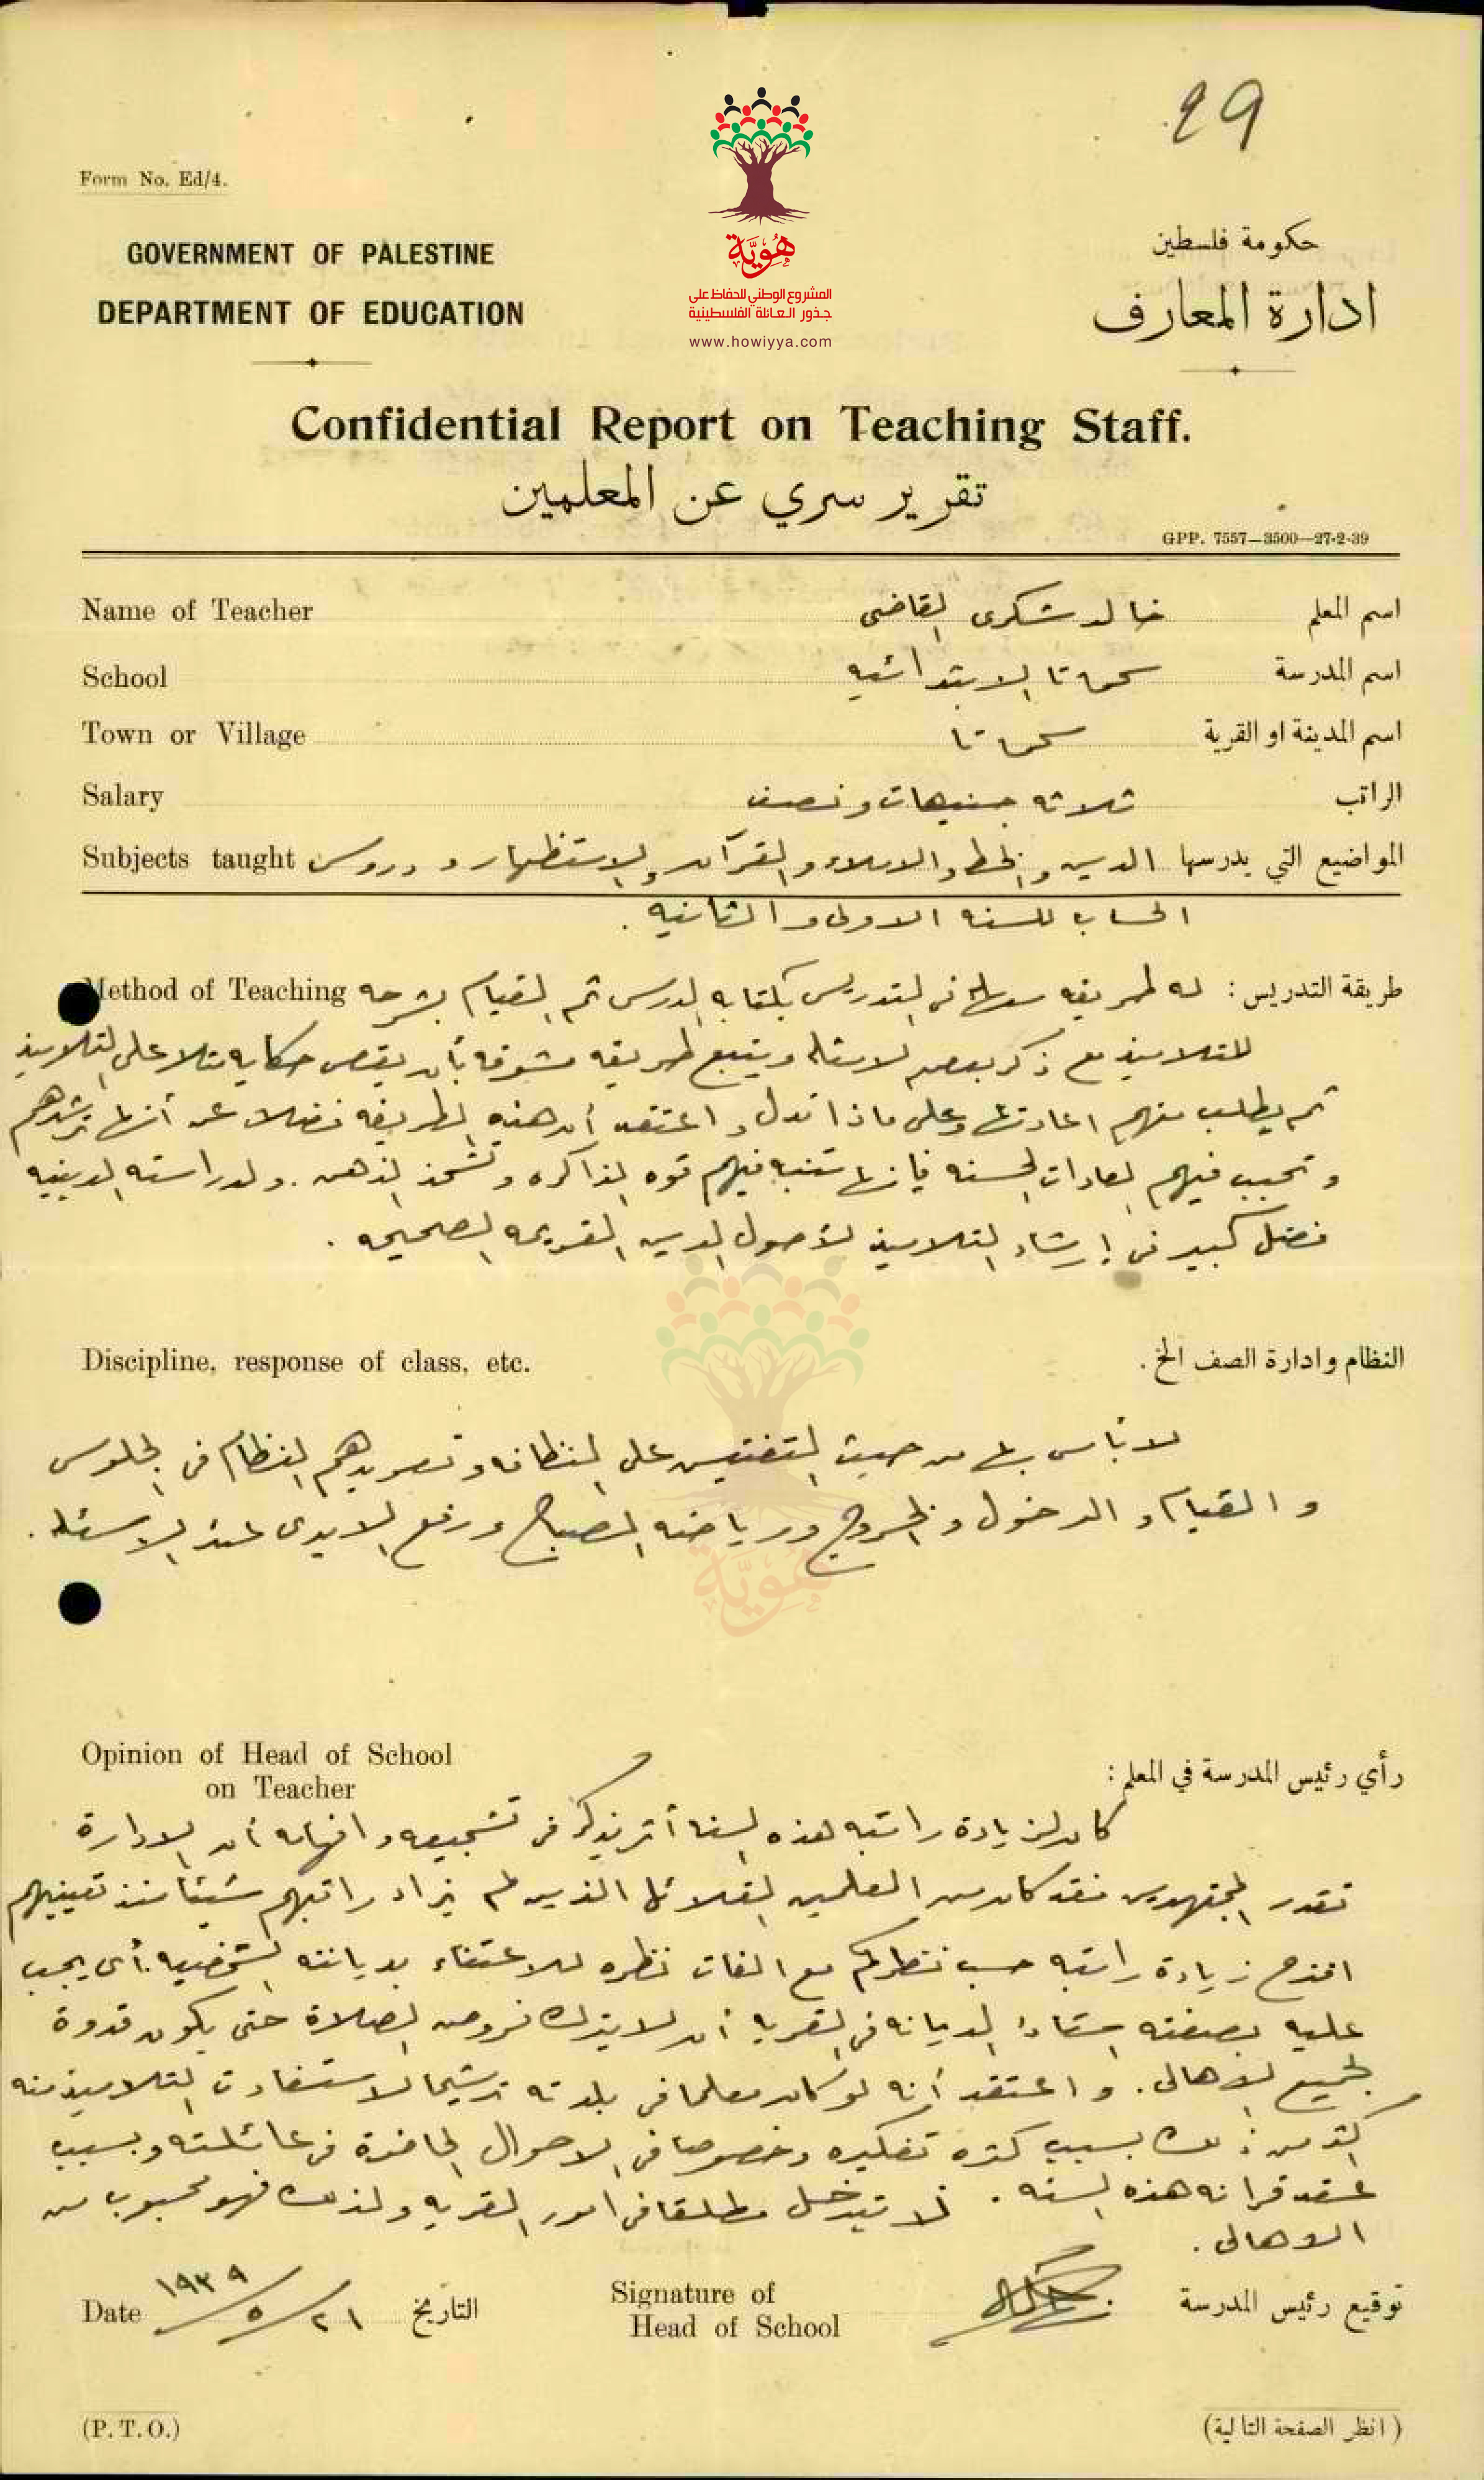 29
Form No. Ed/4.
GOVERNMENT OF PALESTINE
DEPARTMENT OF EDUCATION
حكومة فلسطين
ادارة المعارف
هُويَّة
المشروع الوطني للحفاظ على
جذور العائلة الفلسطينية
www.howiyya.com
Confidential Report on Teaching Staff.
تقرير سري عن المعلمين
GPP. 7557—3500—27-2-39
Name of Teacher خالد شكرى القاضى اسم المعلم
School سحماتا الابتدائيه اسم المدرسة
Town or Village سحماتا اسم المدينة او القرية
Salary ثلاثه جنيهات ونصف الراتب
Subjects taught المواضيع التي يدرسها الدين والخط والاملاء والقرآن والاستظهار ودروس
الحساب للسنه الاولى والثانيه .
Method of Teaching طريقة التدريس : له طريقه سهله فى التدريس بكتابه الدرس ثم القيام بشرحه
للتلاميذ مع ذكر بعض الاسئله ويتبع طريقه مشوقه بأن يقص حكايه مثلا على التلاميذ
ثم يطلب منهم اعادتها وعلى ماذا تدل واعتقد أن هذه الطريقه فضلا عن أنها ترشدهم
وتحبب فيهم العادات الحسنه فإنها تنبه فيهم قوه الذاكره وتشحذ الذهن . ولدراسته الدينيه
فضل كبير فى إرشاد التلاميذ لأصول الدين القويمه الصحيحه .
Discipline, response of class, etc. النظام وادارة الصف الخ .
لا بأس بها من حيث التفتيش على النظافه وتعويدهم النظام فى الجلوس
والقيام والدخول والخروج ورياضه الصباح ورفع الايدى عند الاسئله .
هُويَّة
Opinion of Head of School
on Teacher
رأي رئيس المدرسة في المعلم :
كان لزيادة راتبه هذه السنه أثر يذكر فى تشجيعه وافهامه أن الادارة
تقدر المجتهدين فقد كان من المعلمين القلائل الذين لم يزاد راتبهم شيئا منذ تعيينهم
اقترح زيادة راتبه حسب نظركم مع الفات نظره للاعتناء بديانته الشخصيه . أى يجب
عليه بصفته استاذ الديانه فى القريه أن لا يترك فروض الصلاة حتى يكون قدوة
لجميع الاهالى . واعتقد أنه لو كان معلما فى بلدته ترشيحا لاستفادت التلاميذ منه
اكثر من ذلك بسبب كثره تفكيره وخصوصا فى الاحوال الحاضرة فى عائلته وبسبب
عقد قرانه هذه السنه . لا يتدخل مطلقا فى امور القريه ولذلك فهو محبوب من
الاهالى .
Date ٢١/٥/١٩٣٩ التاريخ
Signature of
Head of School
توقيع رئيس المدرسة
(P. T. O.)
( انظر الصفحة التالية)